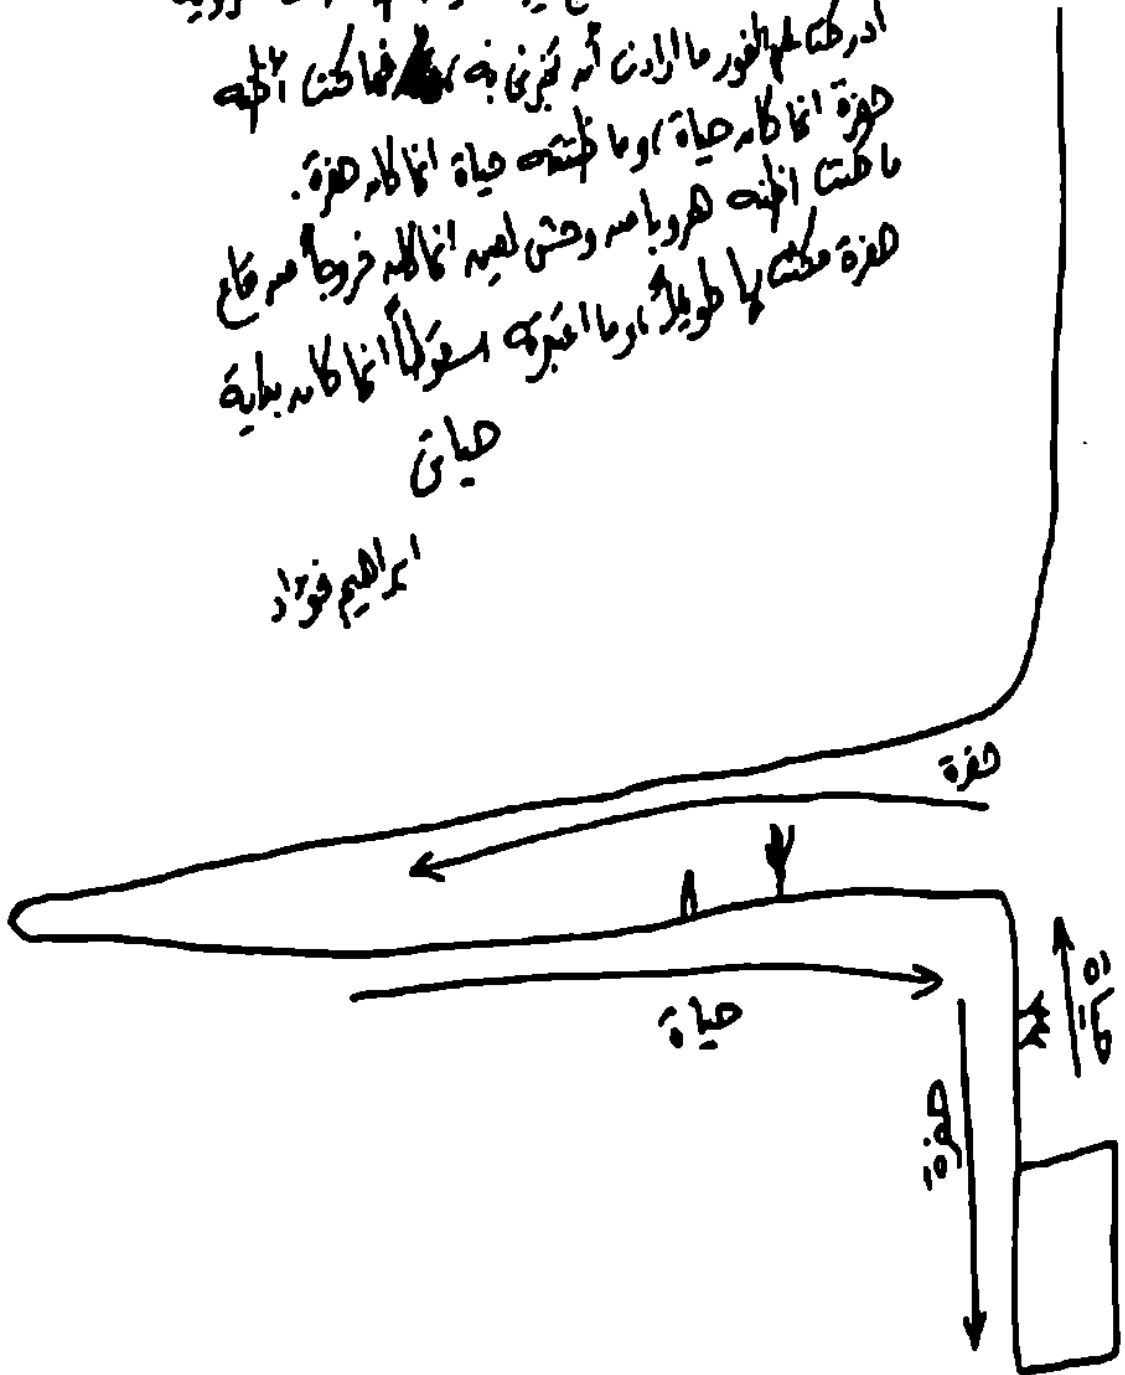 أدركت على الفور ما أرادت أن تخبرني به، فما كنت أظنه
حفرة انما كان حياة، وما ظننته حياة انما كان حفرة.
ما كنت اظنه هروبا من وحش لعين انما كان خروجاً من قاع
حفرة مكثت بها طويلاً، وما اعتبرته سقوطاً انما كان بداية
حياتي
ابراهيم فؤاد
حفرة
حياة
حياة
حفرة